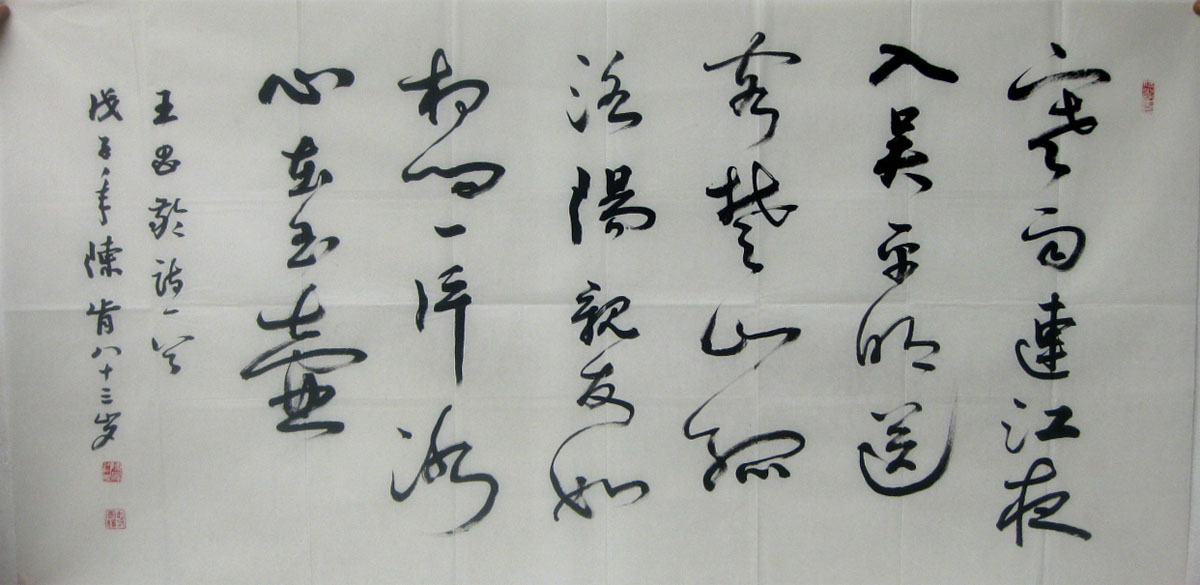 寒雨連江夜
入吴平明送
客楚山孤
洛陽親友如
相问一片冰
心在玉壺
王昌龄詩一首
戊子年陳肯八十三岁